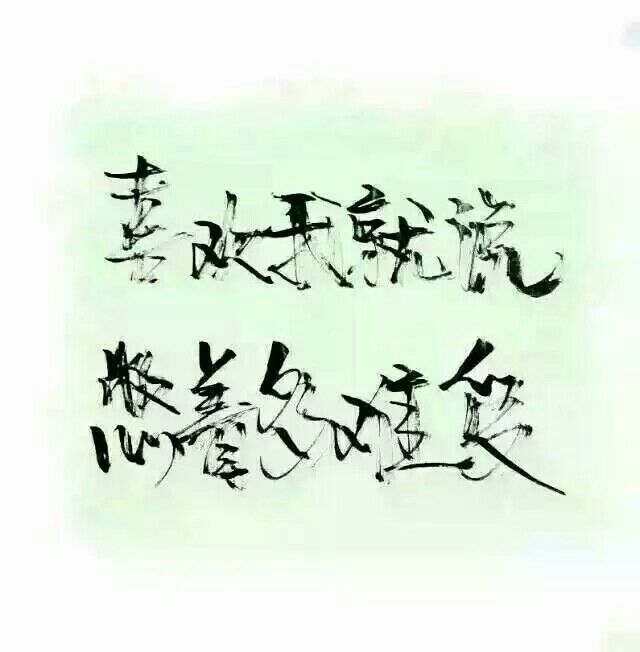 喜欢我就说
憋着多难受